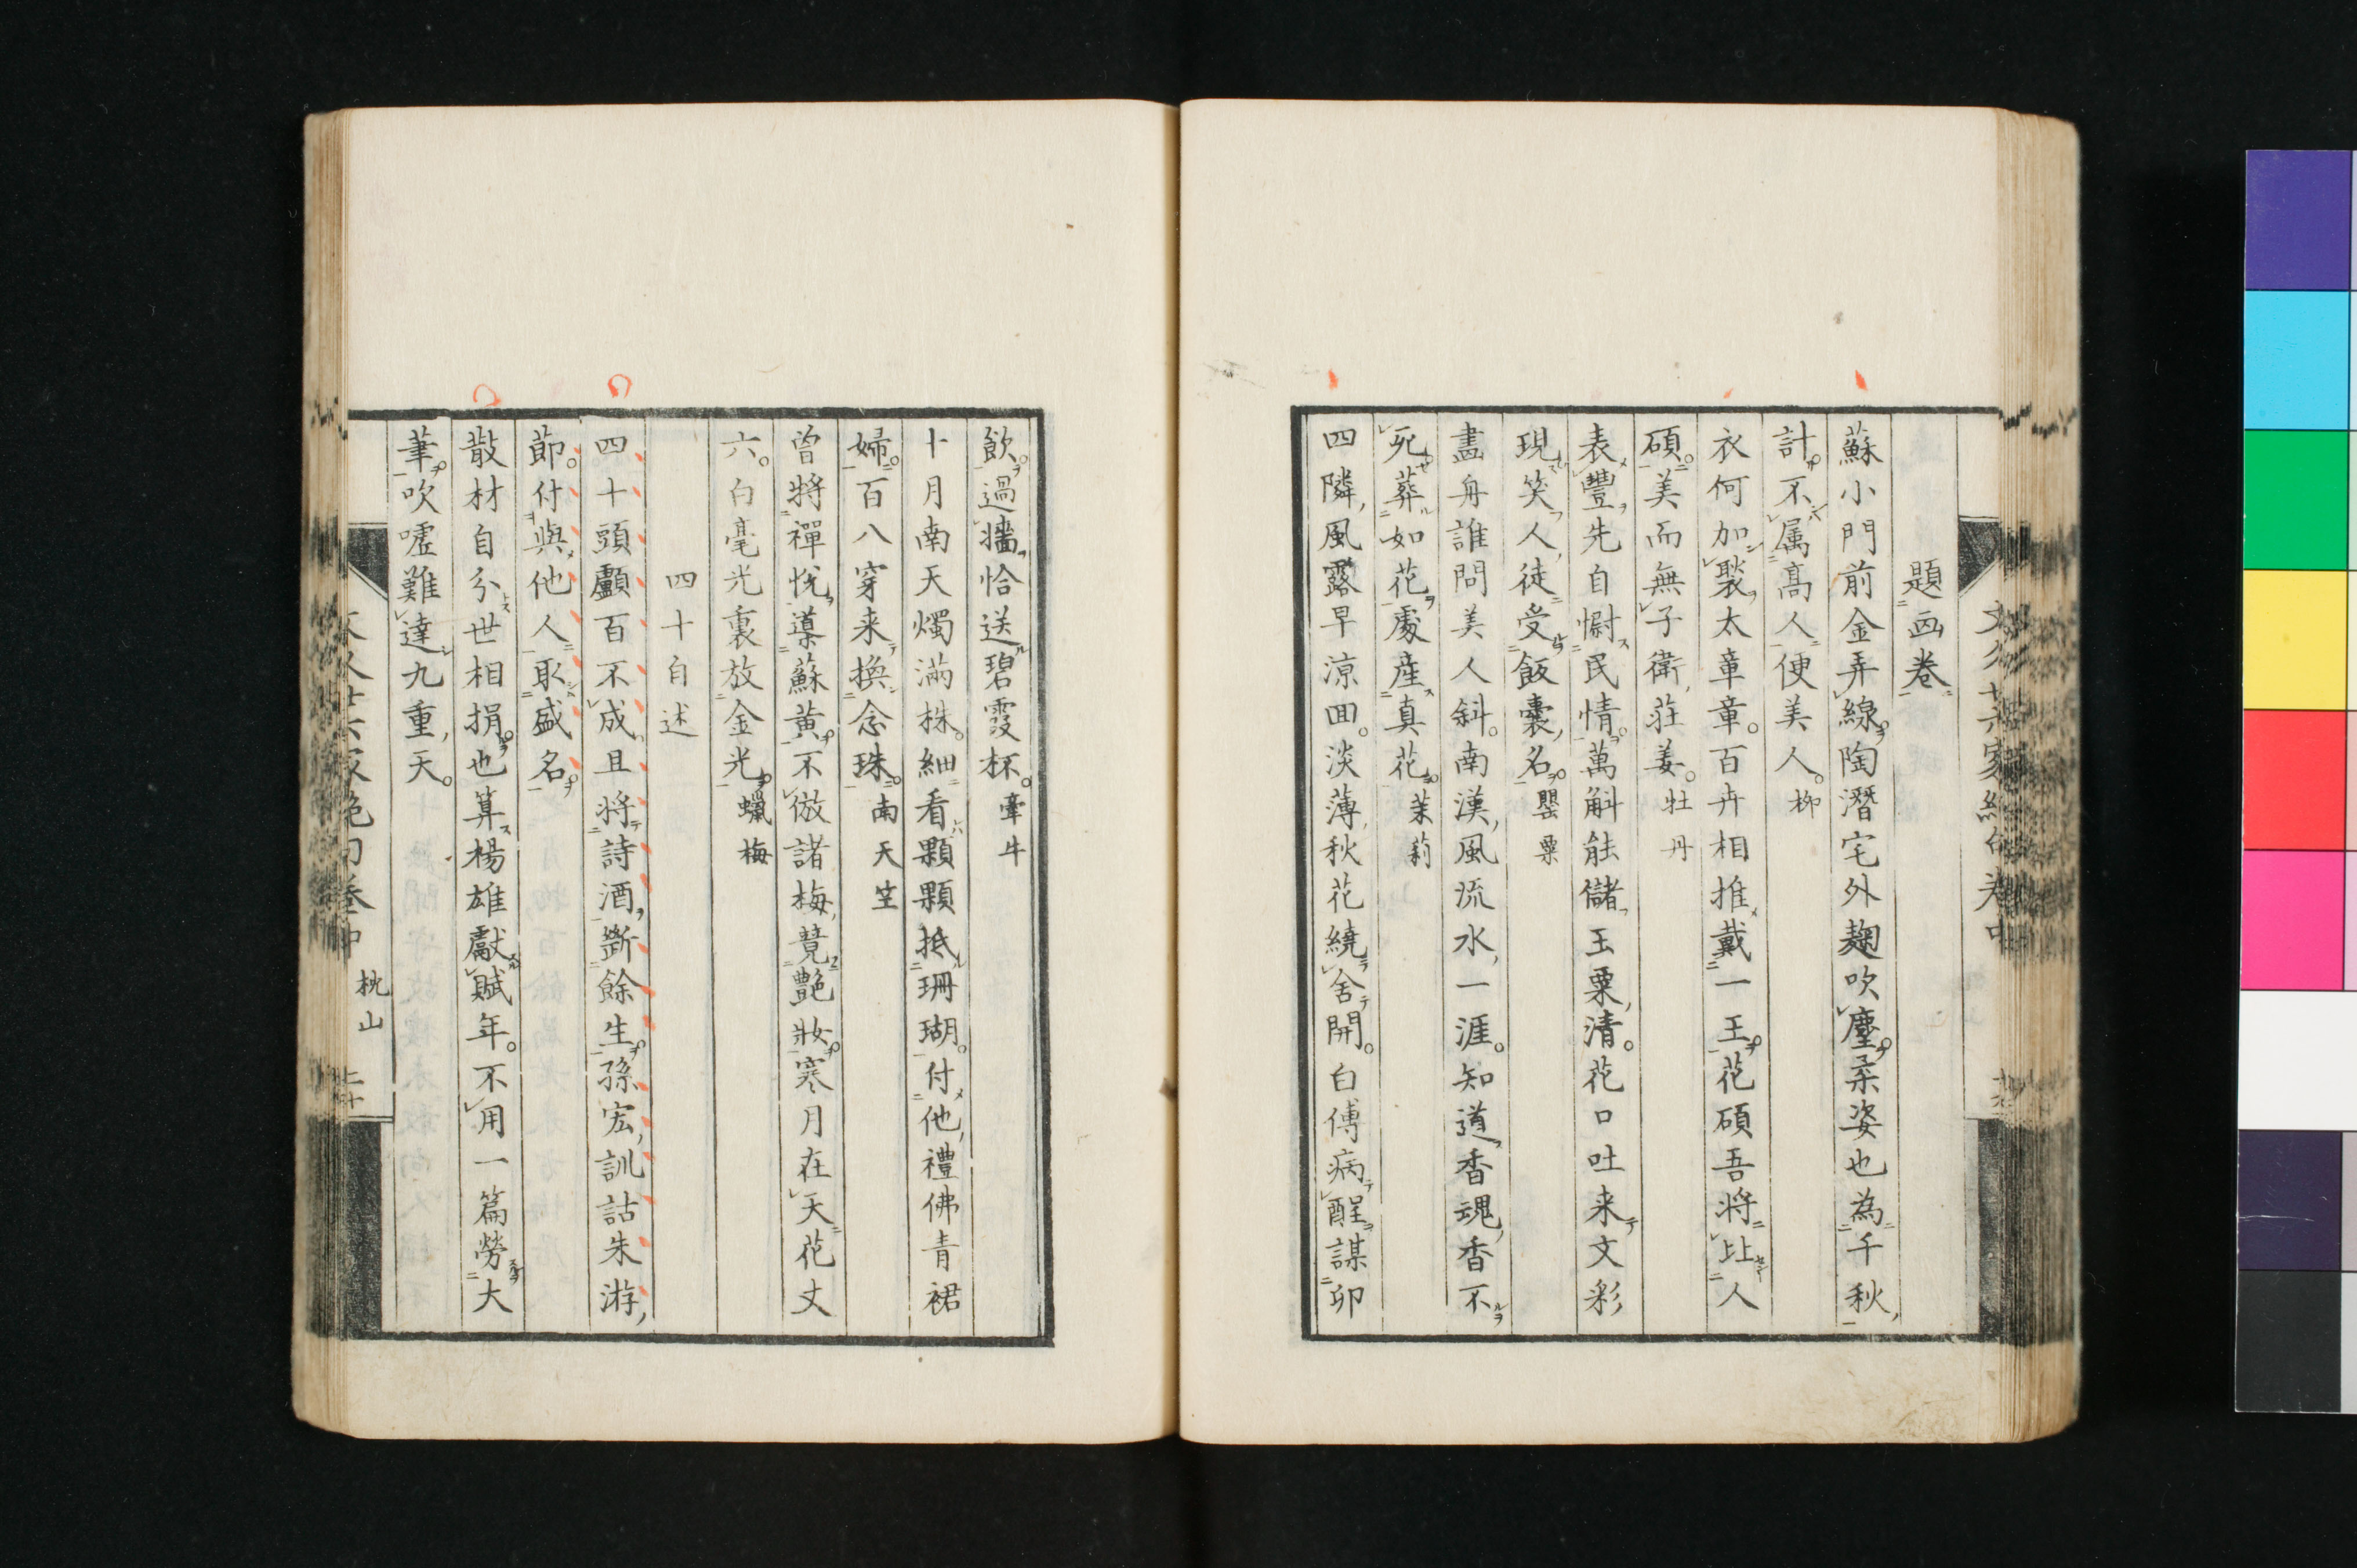 題画卷
蘇小門前金弄線陶潛宅外麹吹塵柔姿也為千秋
計不属高人便美人。柳
衣何加褧太章章。百卉相推戴一王花碩吾將比人
碩。美而無子衛莊姜。牡丹
表豐先自慰民情。萬斛能儲玉粟清。花口吐来文彩
現笑人徒受飯囊名。罌粟
畵舟誰問美人斜。南漢風流水一涯。知道香魂香不
死葬如花處産真花。茉莉
四隣風露早涼回。淡薄秋花繞舍開。白傅病醒謀卯
飲。過牆恰送碧霞杯。牽牛
十月南天燭滿株。細看顆顆抵珊瑚。付他禮佛青裙
婦。百八穿来換念珠。南天竺
曾將禪悦導蘇黄。不倣諸梅覚艶妝。寒月在天花丈
六。白毫光裏放金光。蠟梅
四十自述
四十頭顱百不成且將詩酒斷餘生。孫宏訓詁朱游
節。付與他人取盛名。
散材自分世相捐。也算楊雄獻賦年。不用一篇勞大
筆。吹噓難達九重天。
枕山